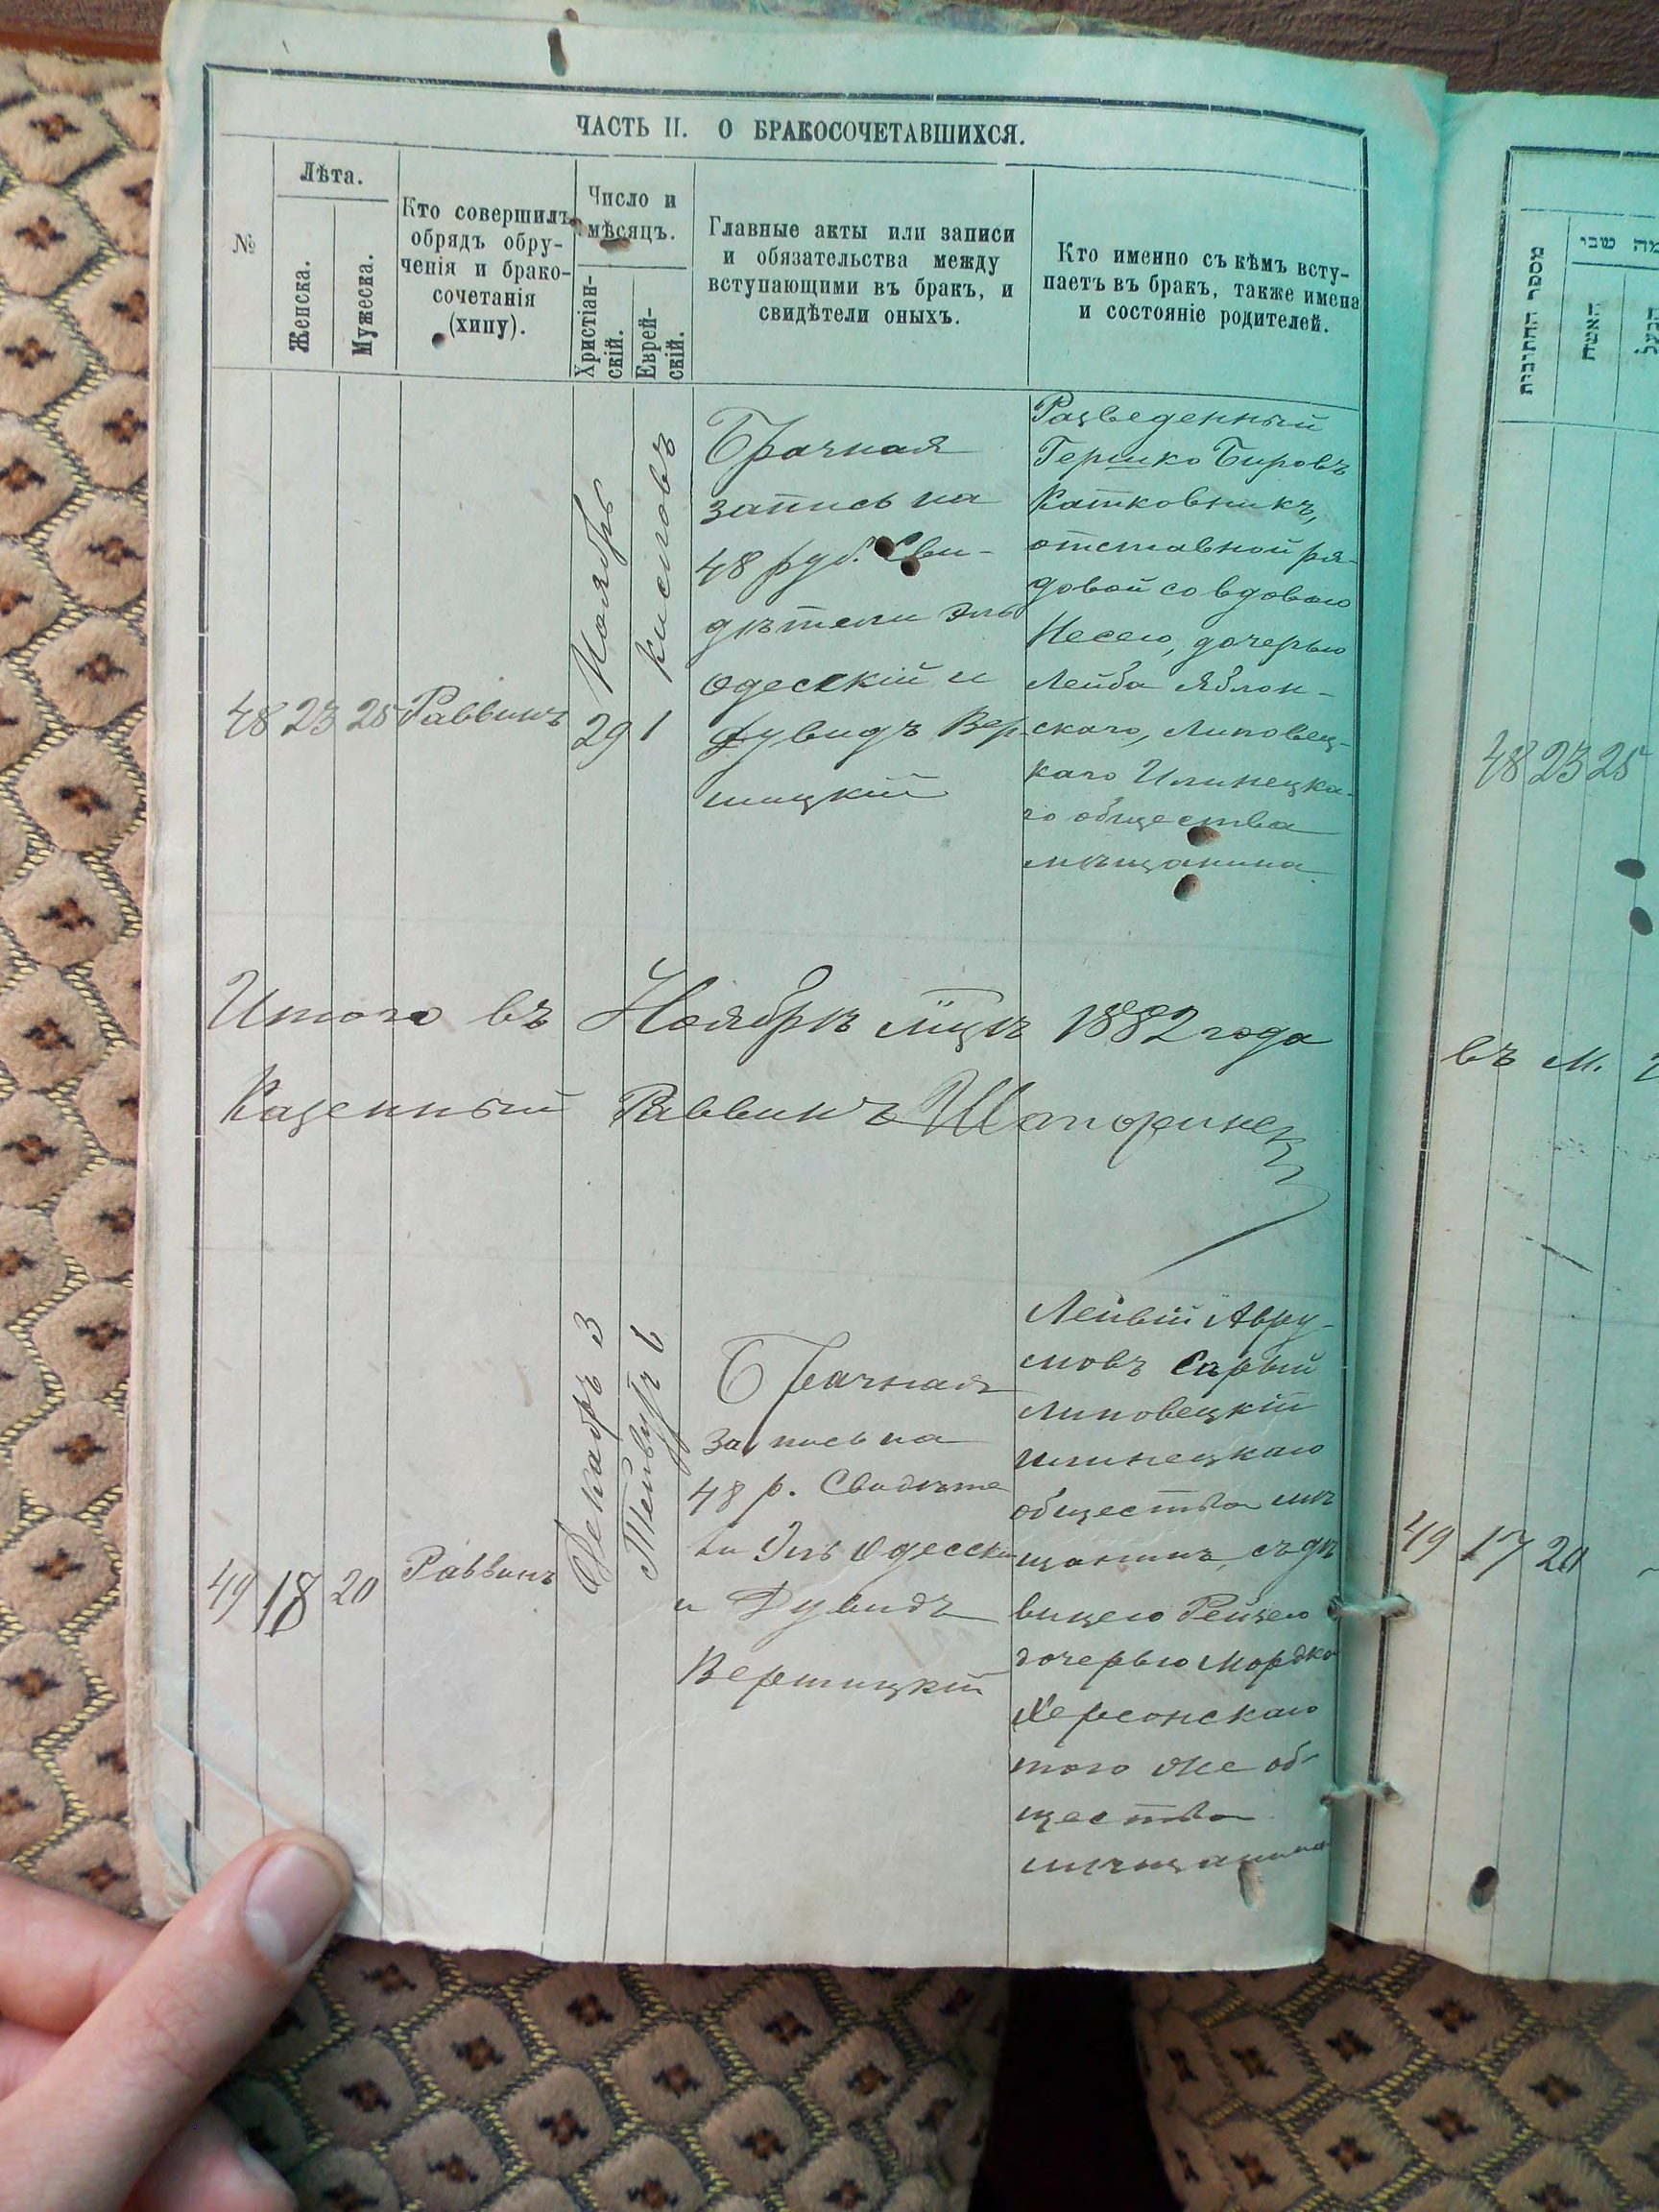 ЧАСТЬ II. О БРАКОСОЧЕТАВШИХСЯ.
№
Лѣта.
Женска.
Мужеска.
Кто совершилъ
обрядъ обру-
ченія и брако-
сочетанія
(хипу).
Число и
мѣсяцъ.
Христіан-
скій.
Еврей-
скій.
Главные акты или записи
и обязательства между
вступающими въ бракъ, и
свидѣтели оныхъ.
Кто именно съ кѣмъ всту-
паетъ въ бракъ, также имена
и состояніе родителей.
48 23 25 Раввинъ
Ноябрь
29
Кислевъ
1
Брачная
запись на
48 руб. Сви-
дѣтели Эль
Одесскій и
Дувидъ Вер
шицкій
Разведенный
Гершко Бировъ
Катковникъ,
отставной ря-
довой со вдовою
Несею, дочерью
Лейба Яблон-
скаго, Липовец-
каго Илинецка-
го общества
мѣщанина.
Итого въ Ноябрѣ мцѣ 1882 года
Казенный Раввинъ
49 18 20 Раввинъ
Декабрь 3
Брачная
запись на
48 р. Свидѣте
ли Эль Одесскій
и Дувидъ
Вершицкій
Авру-
мовъ Сарый
Липовецкій
Илинецкаго
общества мѣ
щанинъ, съ дѣ
вицею Рейзею
дочерью Мордка
Херсонскаго
того же об-
щества
мѣщанина
מספר החתונות
מה שני
האשה
הבעל
48 23 25
въ м.
49 17 20